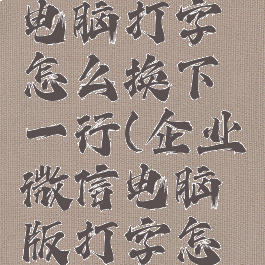 电脑打字
怎么换下
一行(企业
微信电脑
版打字怎